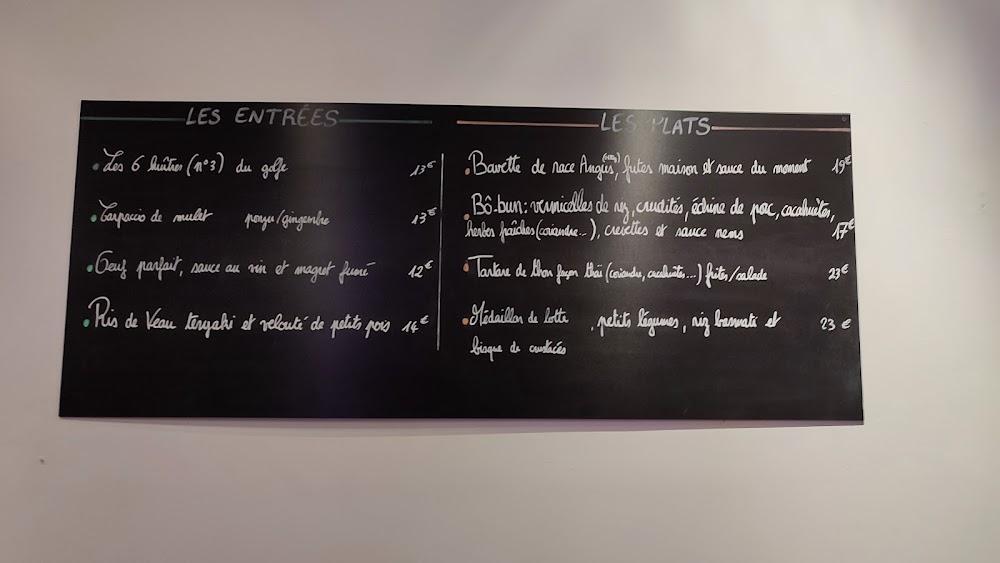 LES ENTRÉES
Les 6 huîtres (n°3) du golfe 13€
Carpaccio de mulet ponzu/gingembre 13€
Oeuf parfait, sauce au vin et magret fumé 12€
Ris de Veau teryaki et velouté de petits pois 14€
LES PLATS
Bavette de race Angus, frites maison et sauce du moment 19€
Bô-bun: vermicelles de riz, crudités, échine de porc, cacahuètes,
herbes fraîches (coriandre...), crevettes et sauce nems 17€
Tartare de thon façon thaï (coriandre, cacahuètes...) frites/salade 23€
Médaillon de lotte, petits légumes, riz basmati et 23€
bisque de crustacés